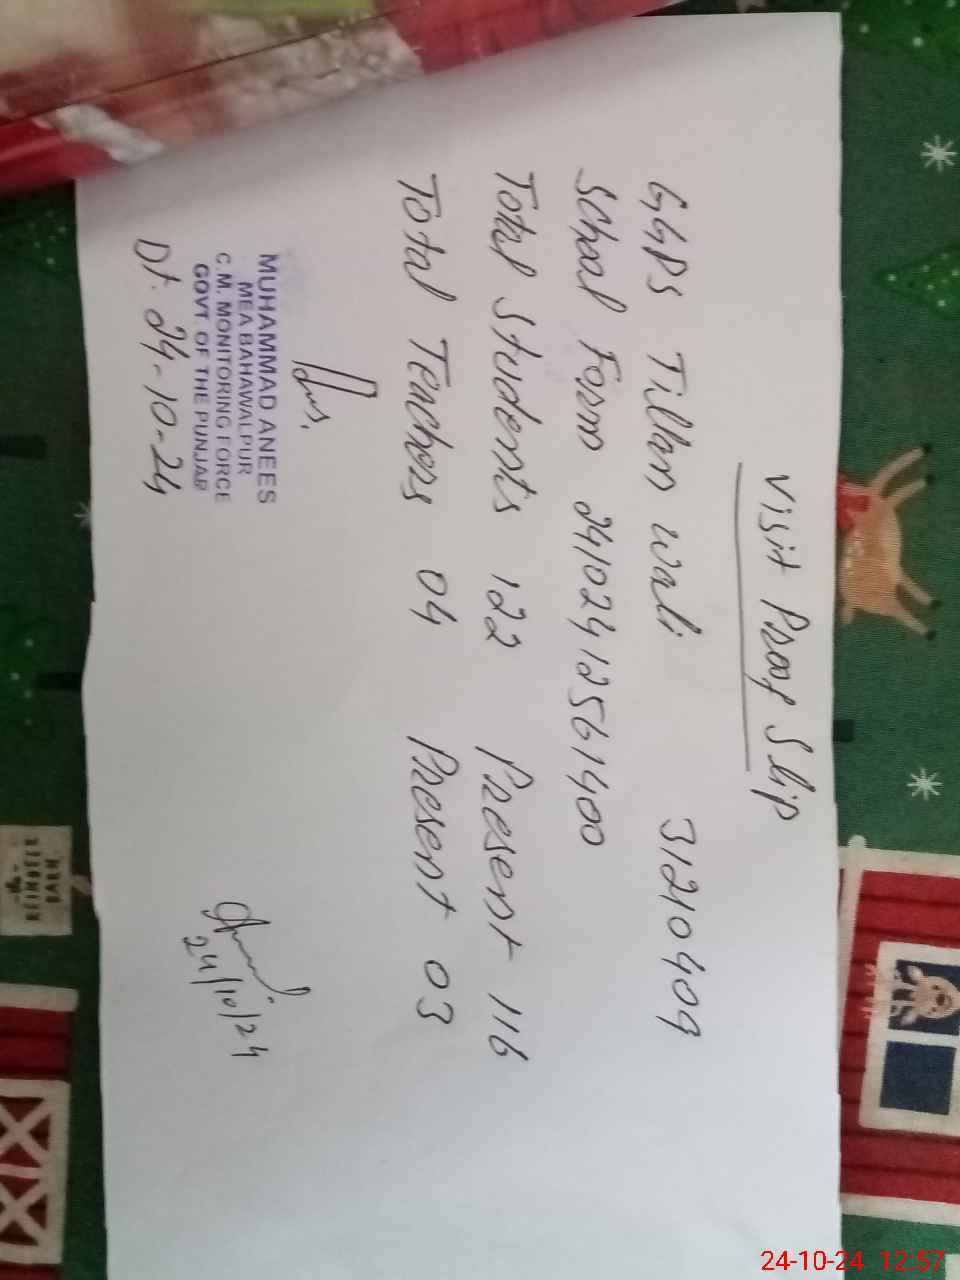 Visit Proof Slip
GGPS Tillan wali 31210409
School Form 24102412561400
Total Students 122 Present 116
Total Teachers 04 Present 03
MUHAMMAD ANEES
MEA BAHAWALPUR
C.M. MONITORING FORCE
GOVT. OF THE PUNJAB
Dt. 24-10-24
24/10/24
REINDEER
BARN
24-10-24 12:57